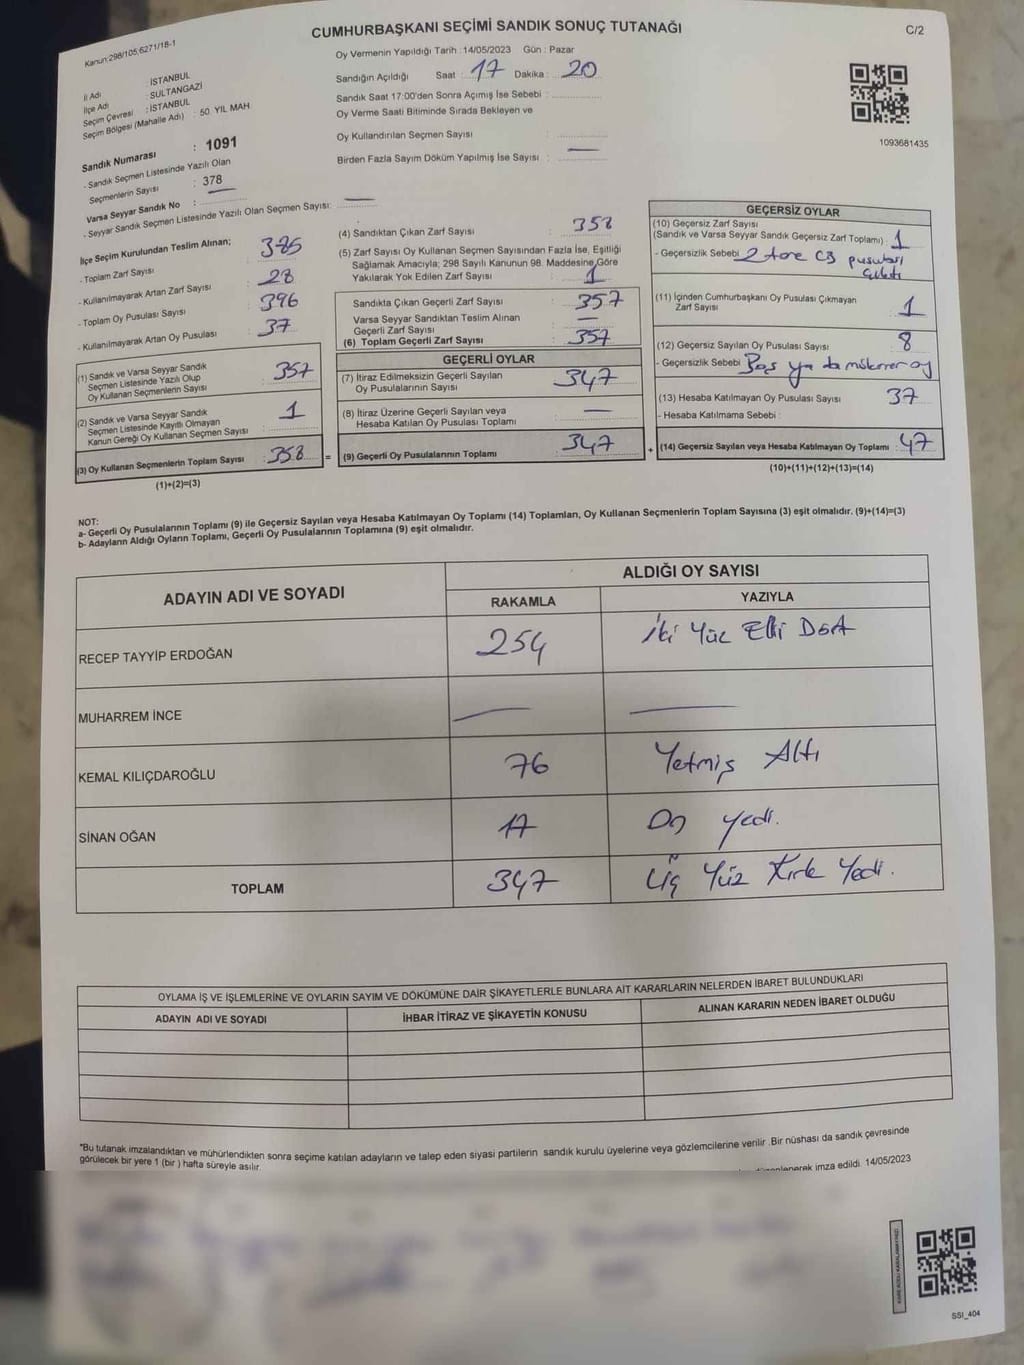 Kanun:298/105,6271/18-1
CUMHURBAŞKANI SEÇİMİ SANDIK SONUÇ TUTANAĞI
C/2
Oy Vermenin Yapıldığı Tarih :14/05/2023 Gün : Pazar
Sandığın Açıldığı Saat : 17 Dakika : 20
Sandık Saat 17:00'den Sonra Açımış İse Sebebi :
Oy Verme Saati Bitiminde Sırada Bekleyen ve
Oy Kullandırılan Seçmen Sayısı :
Birden Fazla Sayım Döküm Yapılmış İse Sayısı : —
1093681435
İl Adı : İSTANBUL
İlçe Adı : SULTANGAZİ
Seçim Çevresi : İSTANBUL
Seçim Bölgesi (Mahalle Adı) : 50. YIL MAH
Sandık Numarası : 1091
- Sandık Seçmen Listesinde Yazılı Olan
Seçmenlerin Sayısı : 378
Varsa Seyyar Sandık No : —
- Seyyar Sandık Seçmen Listesinde Yazılı Olan Seçmen Sayısı: —
İlçe Seçim Kurulundan Teslim Alınan;
- Toplam Zarf Sayısı : 385
- Kullanılmayarak Artan Zarf Sayısı : 28
- Toplam Oy Pusulası Sayısı : 396
- Kullanılmayarak Artan Oy Pusulası : 37
(1) Sandık ve Varsa Seyyar Sandık
Seçmen Listesinde Yazılı Olup
Oy Kullanan Seçmenlerin Sayısı : 357
(2) Sandık ve Varsa Seyyar Sandık
Seçmen Listesinde Kayıtlı Olmayan
Kanun Gereği Oy Kullanan Seçmen Sayısı : 1
(3) Oy Kullanan Seçmenlerin Toplam Sayısı : 358 =
(1)+(2)=(3)
(4) Sandıktan Çıkan Zarf Sayısı : 358
(5) Zarf Sayısı Oy Kullanan Seçmen Sayısından Fazla İse, Eşitliği
Sağlamak Amacıyla; 298 Sayılı Kanunun 98. Maddesine Göre
Yakılarak Yok Edilen Zarf Sayısı : 1
Sandıkta Çıkan Geçerli Zarf Sayısı : 357
Varsa Seyyar Sandıktan Teslim Alınan
Geçerli Zarf Sayısı : —
(6) Toplam Geçerli Zarf Sayısı : 357
GEÇERLİ OYLAR
(7) İtiraz Edilmeksizin Geçerli Sayılan
Oy Pusulalarının Sayısı : 347
(8) İtiraz Üzerine Geçerli Sayılan veya
Hesaba Katılan Oy Pusulası Toplamı : —
(9) Geçerli Oy Pusulalarının Toplamı : 347 +
GEÇERSİZ OYLAR
(10) Geçersiz Zarf Sayısı
(Sandık ve Varsa Seyyar Sandık Geçersiz Zarf Toplamı) : 1
- Geçersizlik Sebebi : 2 tane CB pusulası
çıktı
(11) İçinden Cumhurbaşkanı Oy Pusulası Çıkmayan
Zarf Sayısı : 1
(12) Geçersiz Sayılan Oy Pusulası Sayısı : 8
- Geçersizlik Sebebi : Boş ya da mükerrer oy
(13) Hesaba Katılmayan Oy Pusulası Sayısı : 37
- Hesaba Katılmama Sebebi :
(14) Geçersiz Sayılan veya Hesaba Katılmayan Oy Toplamı : 47
(10)+(11)+(12)+(13)=(14)
NOT:
a- Geçerli Oy Pusulalarının Toplamı (9) ile Geçersiz Sayılan veya Hesaba Katılmayan Oy Toplamı (14) Toplamları, Oy Kullanan Seçmenlerin Toplam Sayısına (3) eşit olmalıdır. (9)+(14)=(3)
b- Adayların Aldığı Oyların Toplamı, Geçerli Oy Pusulalarının Toplamına (9) eşit olmalıdır.
ADAYIN ADI VE SOYADI
ALDIĞI OY SAYISI
RAKAMLA YAZIYLA
RECEP TAYYİP ERDOĞAN 254 İki Yüz Elli Dört
MUHARREM İNCE — —
KEMAL KILIÇDAROĞLU 76 Yetmiş Altı
SİNAN OĞAN 17 On yedi.
TOPLAM 347 Üç Yüz Kırk Yedi.
OYLAMA İŞ VE İŞLEMLERİNE VE OYLARIN SAYIM VE DÖKÜMÜNE DAİR ŞİKAYETLERLE BUNLARA AİT KARARLARIN NELERDEN İBARET BULUNDUKLARI
ADAYIN ADI VE SOYADI İHBAR İTİRAZ VE ŞİKAYETİN KONUSU ALINAN KARARIN NEDEN İBARET OLDUĞU
*Bu tutanak imzalandıktan ve mühürlendikten sonra seçime katılan adayların ve talep eden siyasi partilerin sandık kurulu üyelerine veya gözlemcilerine verilir .Bir nüshası da sandık çevresinde
görülecek bir yere 1 (bir ) hafta süreyle asılır.
düzenlenerek imza edildi. 14/05/2023
SSI_404